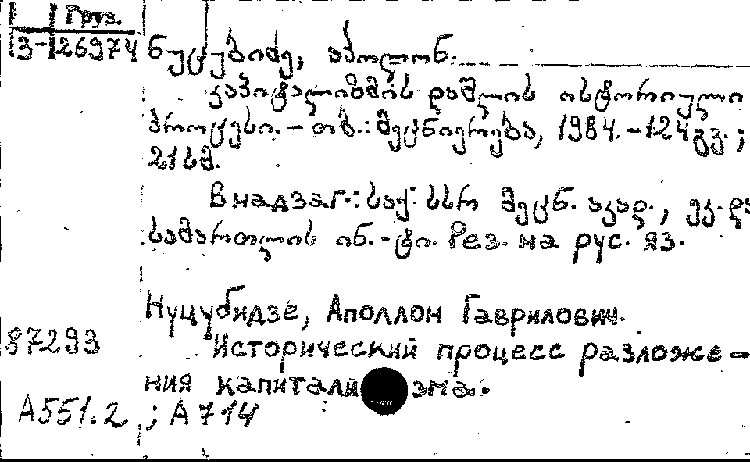 Груз.
3-26974 ნუცუბიძე, აპოლონ.
კაპიტალიზმის დაშლის ისტორიული
პროცესი. - თბ.: მეცნიერება, 1984. - 124 გვ.;
21 სმ.
В надзаг.: საქ. სსრ მეცნ. აკად., ეკ. და
სამართლის ინ.-ტი. Рез. на рус. яз.
Нуцубидзе, Аполлон Гаврилович.
87293 Исторический процесс разложе-
ния капитализма.
А551.2; А714